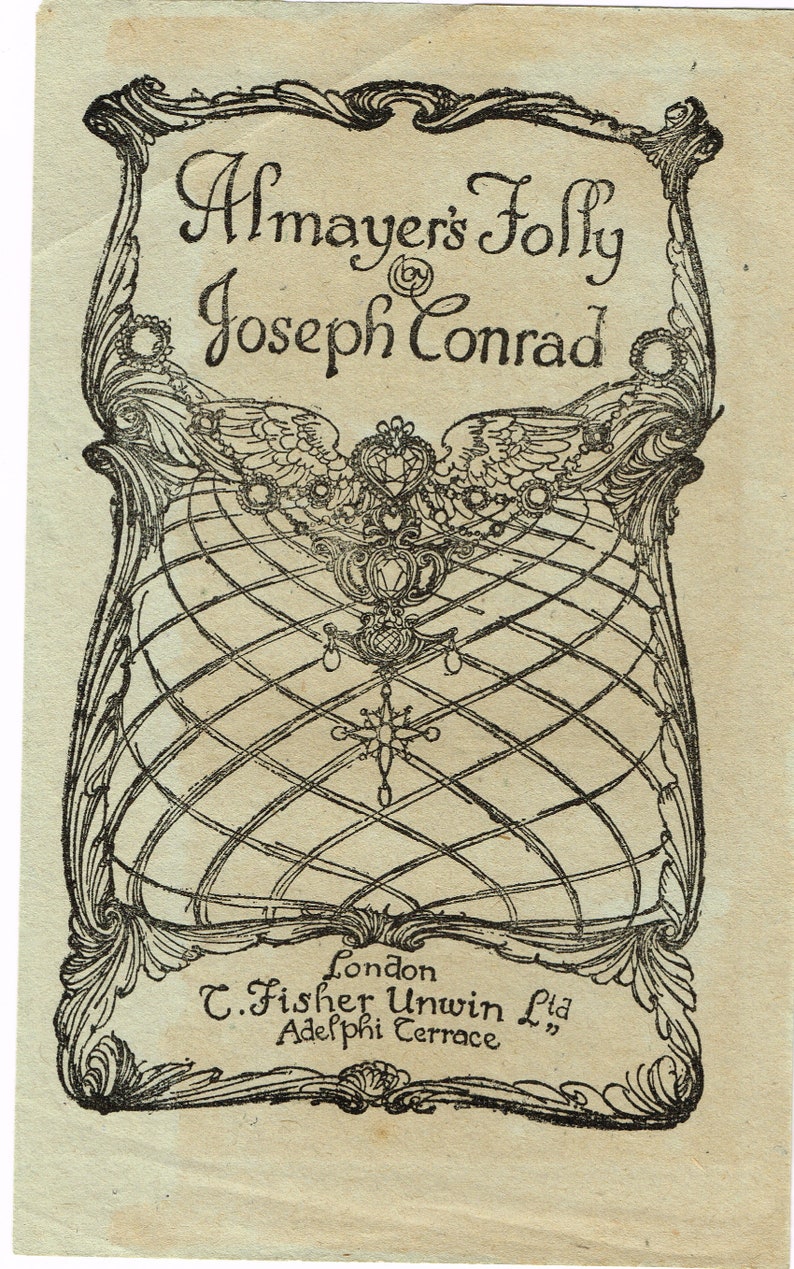 Almayer's Folly
by
Joseph Conrad
London
T. Fisher Unwin Ltd
Adelphi Terrace